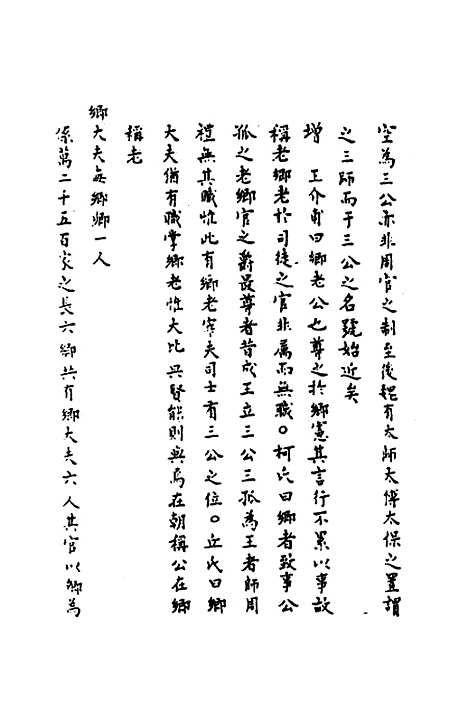 空為三公亦非周官之制至後魏有太師太傅太保之置謂
之三師而于三公之名號始近矣
增　王介甫曰鄉老公也尊之於鄉憲其言行不累以事故
稱老鄉老於司徒之官非屬而無職○柯氏曰鄉者致事公
孤之老鄉官之爵最尊者昔成王立三公三孤為王者師周
禮無其職惟此有鄉老宰夫司士有三公之位○丘氏曰鄉
大夫猶有職掌鄉老惟大比興賢能則與焉在朝稱公在鄉
稱老
鄉大夫每鄉卿一人
係萬二千五百家之長六鄉共有鄉大夫六人其官以卿為